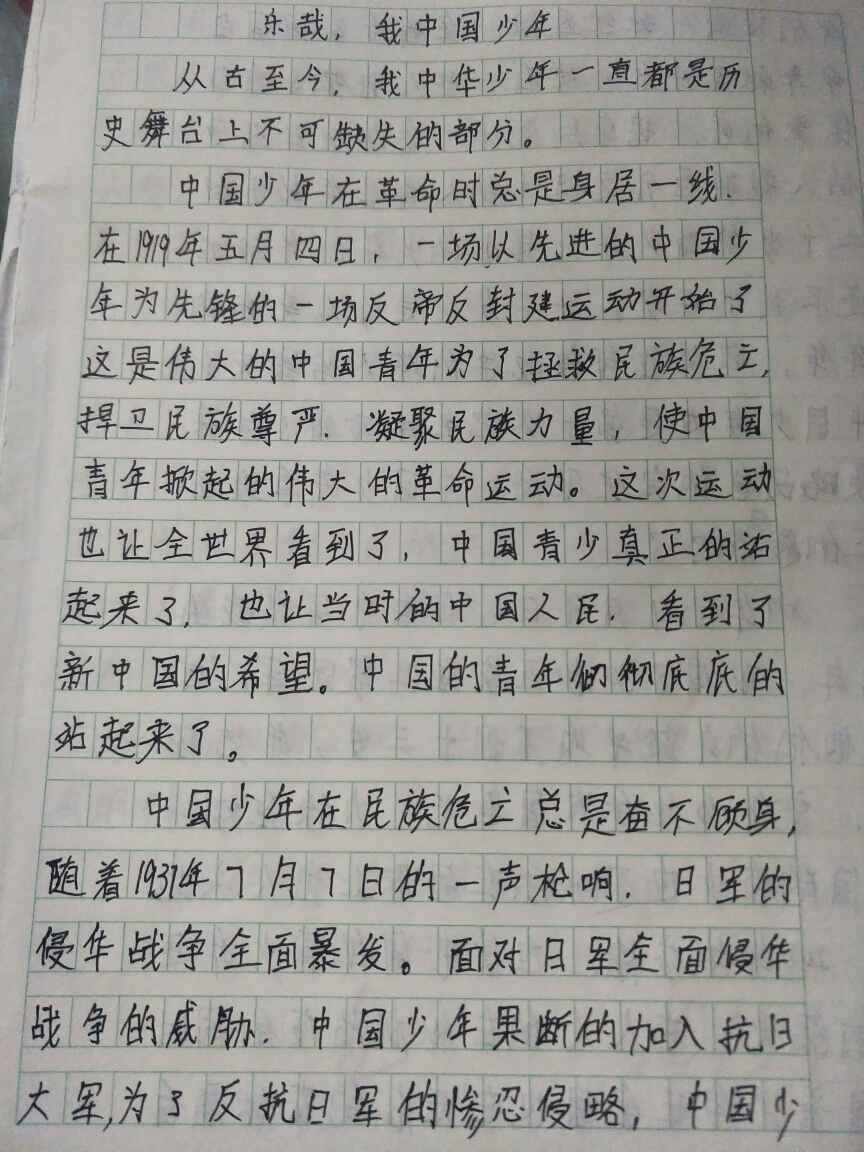 乐哉，我中国少年
从古至今，我中华少年一直都是历
史舞台上不可缺失的部分。
中国少年在革命时总是身居一线.
在1919年五月四日，一场以先进的中国少
年为先锋的一场反帝反封建运动开始了
这是伟大的中国青年为了拯救民族危亡,
捍卫民族尊严.凝聚民族力量，使中国
青年掀起的伟大的革命运动。这次运动
也让全世界看到了，中国青少真正的站
起来了，也让当时的中国人民.看到了
新中国的希望。中国的青年们彻底底的
站起来了。
中国少年在民族危亡总是奋不顾身,
随着1937年7月7日的一声枪响.日军的
侵华战争全面暴发。面对日军全面侵华
战争的威胁.中国少年果断的加入抗日
大军,为了反抗日军的惨忍侵略，中国少